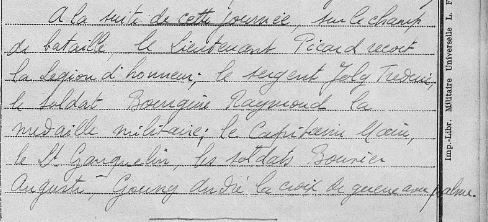 A la suite de cette journée, sur le champ
de bataille, le Lieutenant Picard reçoit
la légion d'honneur; le sergent Joly
le soldat Bourgine Raymond la
médaille militaire; le Capitaine
le St Gauquelin, les soldats Bouvier
Auguste, la croix de guerre avec palme.
Imp.-Libr. Militaire Universelle L. F